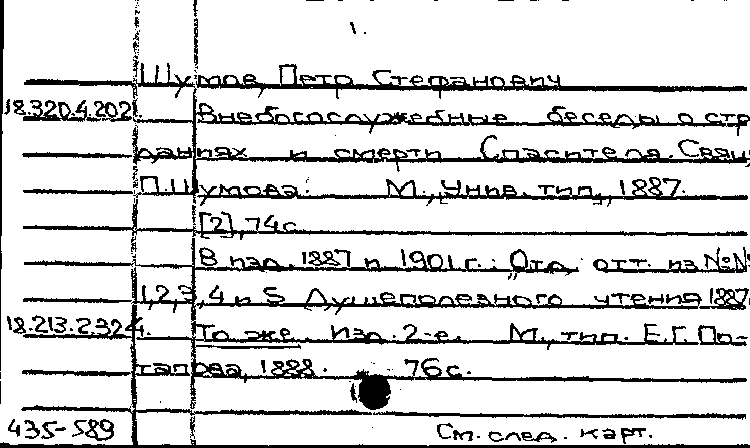 1.
Шумов, Петр Стефанович
18.320.4.202. Внебогослужебные беседы о стра
даниях и смерти Спасителя. Свящ.
П. Шумова. М., Унив. тип., 1887.
[2], 74 с.
В изд. 1887 и 1901 г.: „Отд. отт. из №№
1, 2, 3, 4 и 5 Душеполезного чтения 1887
18.213.2.324. То же. Изд. 2-е. М., тип. Е.Г. По-
тапова, 1888. 76 с.
435-589 См. след. карт.